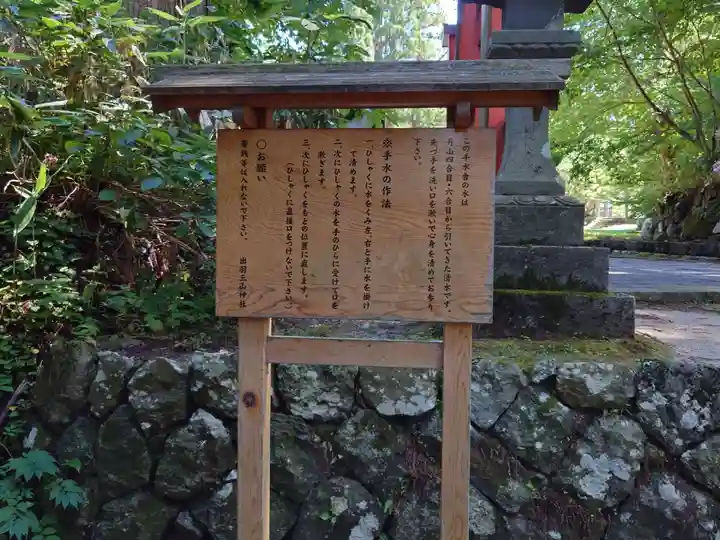 この手水舎の水は
月山四合目・六合目から引いてきた清水です。
先づ手を洗い口を漱いで心身を清めてお参り
下さい。
※手水の作法
一、ひしゃくに水をくみ左、右と手に水を掛け
て清めます。
二、次にひしゃくの水を手のひらに受けて口を
漱ぎます。
三、次にひしゃくをもとの位置に直します。
（ひしゃくに直接口をつけないで下さい）
○お願い
賽銭等は入れないで下さい。
出羽三山神社